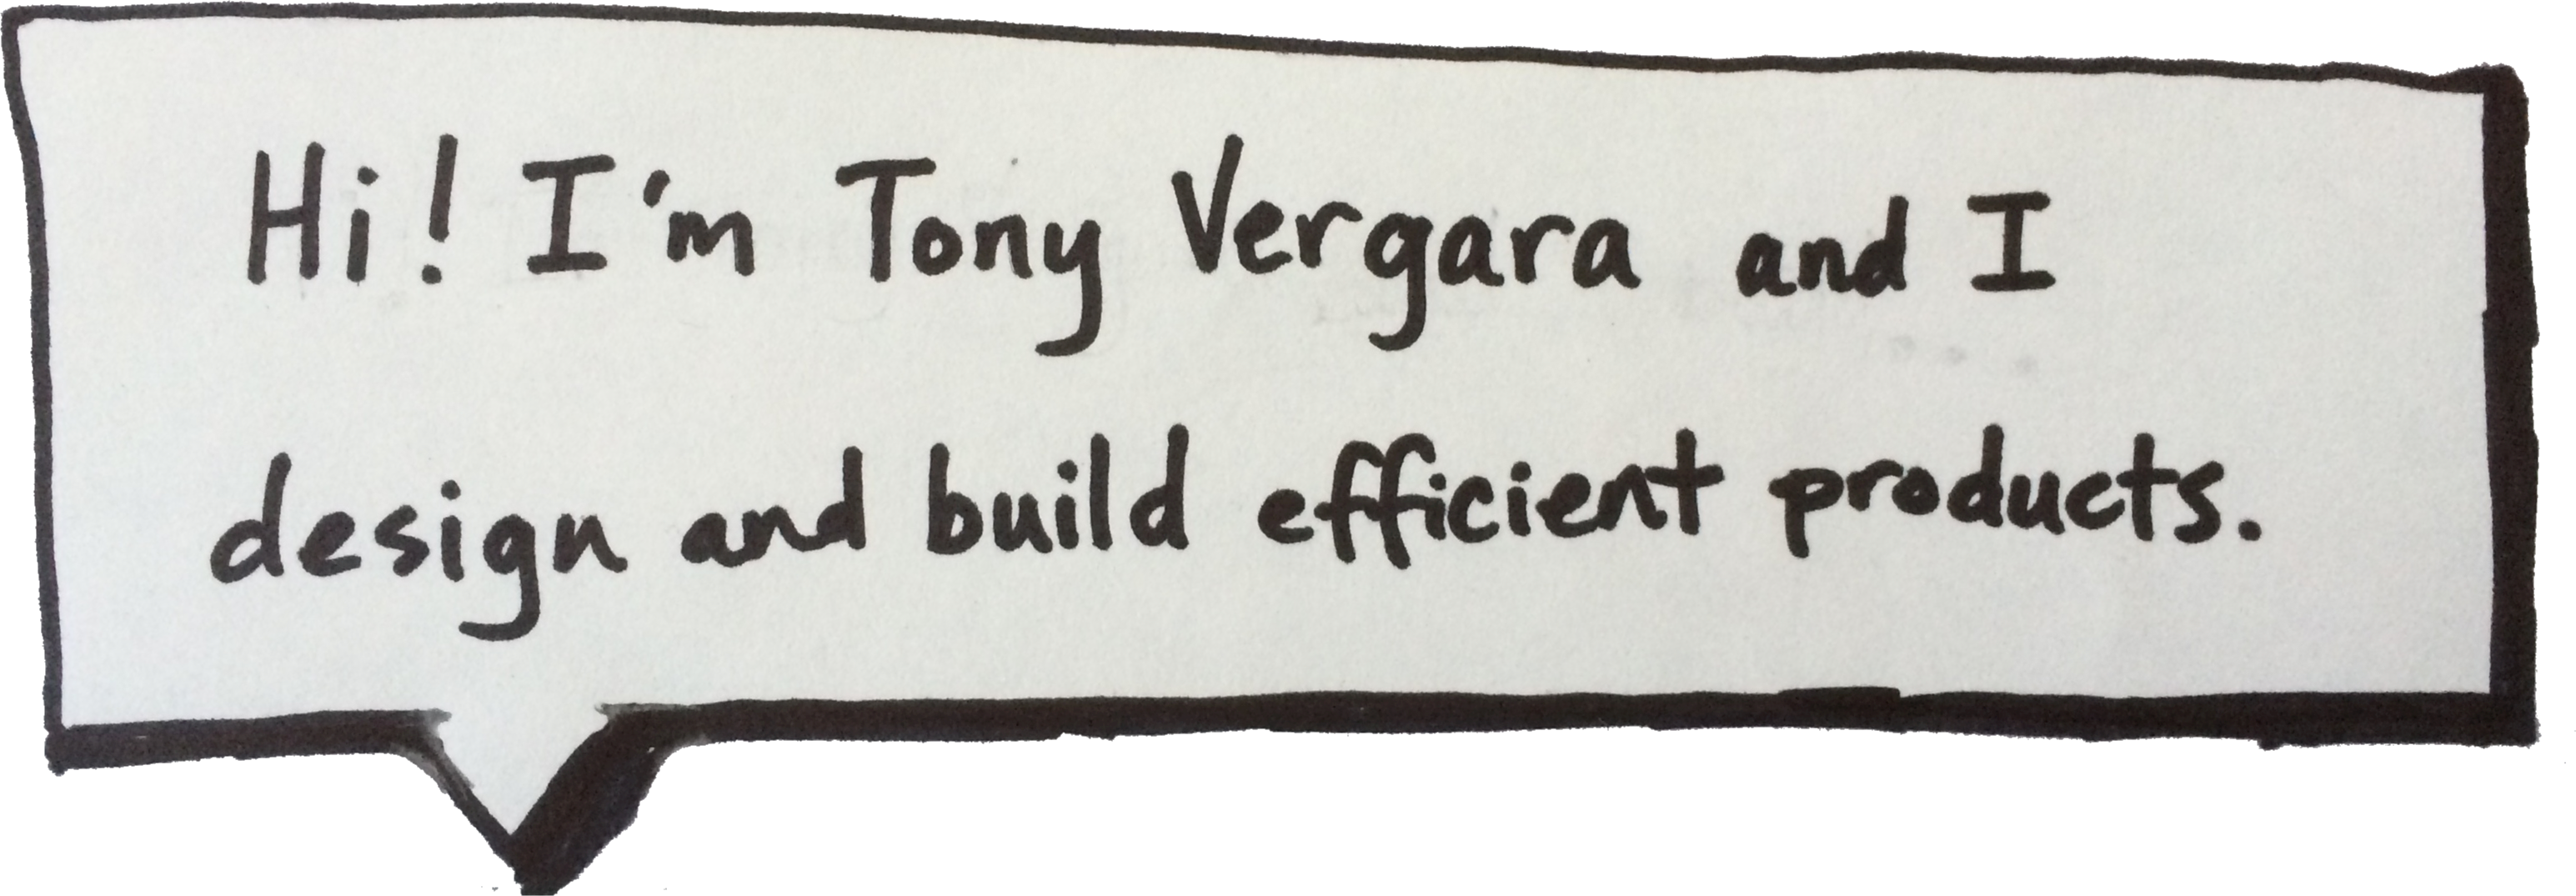 Hi! I'm Tony Vergara and I
design and build efficient products.